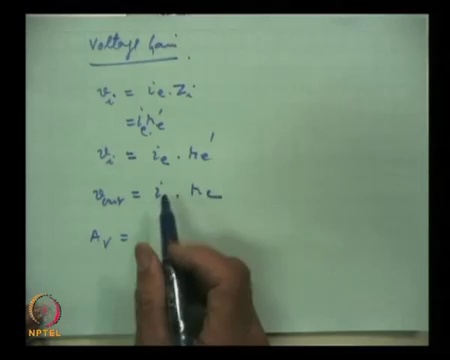 Voltage Gain
v_i = i_e . Z_i
= i_e . r_e'
v_i = i_e . r_e'
v_out = i . r_c
A_V =
NPTEL